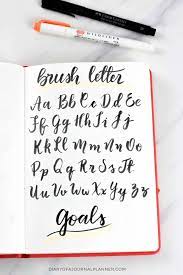 brush letter
Aa Bb Cc Dd Ee Ff
Gg Hh Ii Jj
Kk Ll Mm Nn Oo
Pp Qq Rr Ss Tt
Uu Vv Ww Xx Yy Zz
Goals
DIARYOFAJOURNALPLANNER.COM